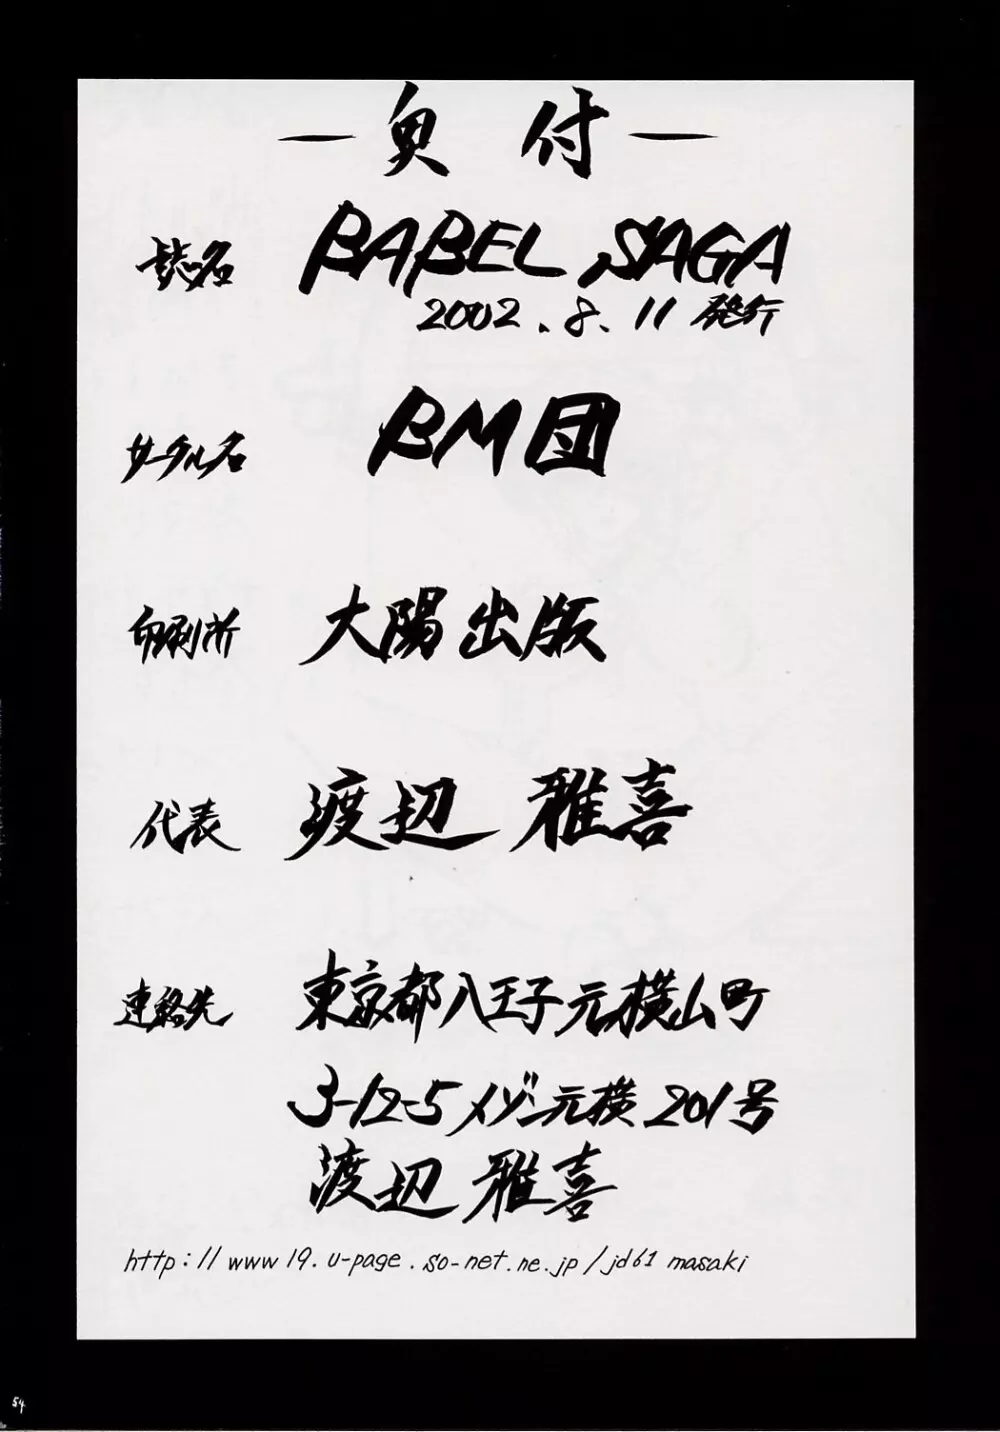 奥付
誌名 BABEL SAGA
2002.8.11 発行
サークル名 BM団
印刷所 大陽出版
代表 渡辺 雅喜
連絡先 東京都八王子元横山町
3-12-5 メゾン元横 201号
渡辺 雅喜
http://www19.u-page.so-net.ne.jp/jd61 masaki
54